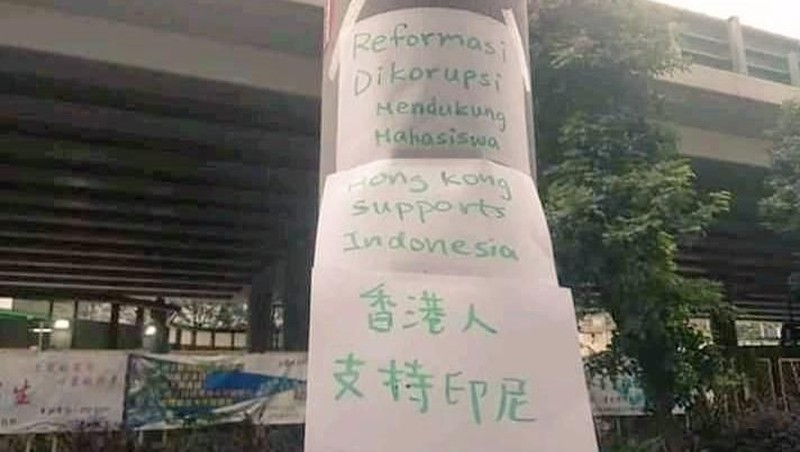 Reformasi
Dikorupsi
Mendukung
Mahasiswa
Hong Kong
supports
Indonesia
香港人
支持印尼
生